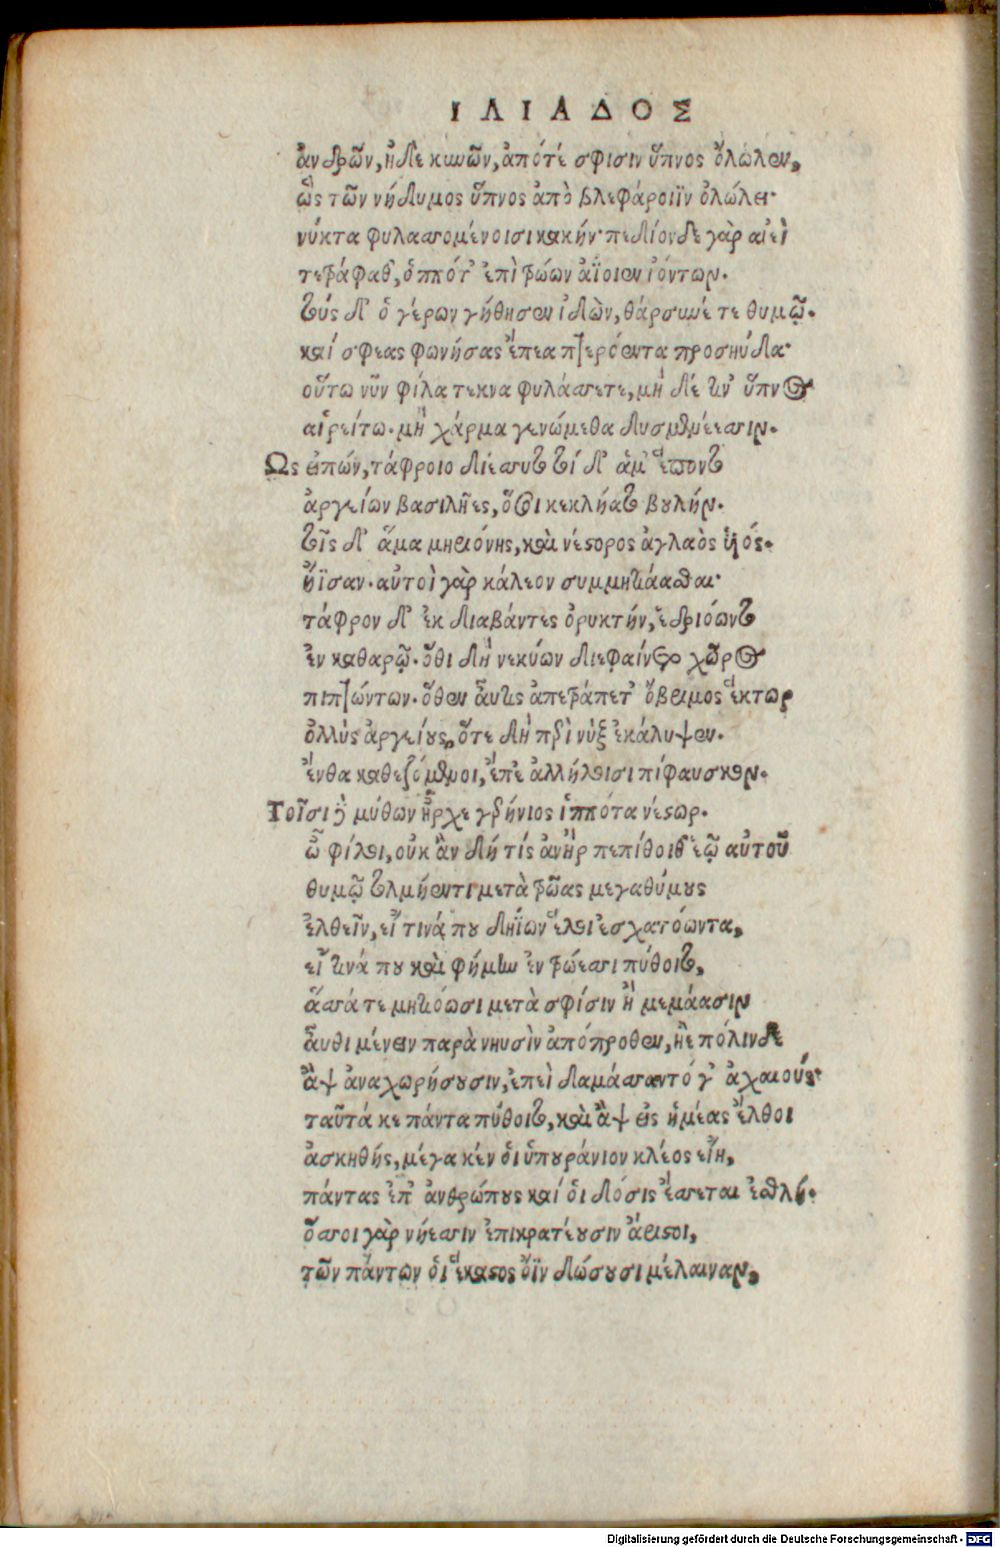 ΙΛΙΑΔΟΣ
ἀνδρῶν, ἠδὲ κυνῶν, ἀπό τέ σφισιν ὕπνος ὄλωλεν,
ὣς τῶν νήδυμος ὕπνος ἀπὸ βλεφάροιϊν ὀλώλει·
νύκτα φυλασσομένοισι κακήν· πεδίονδε γὰρ αἰεὶ
τετράφαθ', ὁππότ' ἐπὶ τρώων ἀΐοιεν ἰόντων.
τοὺς δ' ὁ γέρων γήθησεν ἰδὼν, θάρσυνέ τε θυμῷ.
καί σφεας φωνήσας ἔπεα πτερόεντα προσηύδα·
οὕτω νῦν φίλα τεκνα φυλάσσετε, μὴ δέ τιν' ὕπνος
αἱρείτω. μὴ χάρμα γενώμεθα δυσμενέεσσιν.
Ὣς εἰπών, τάφροιο διέσσυτο τοί δ' ἅμ' ἕποντο
ἀργείων βασιλῆες, ὅσοι κεκλήατο βουλήν.
τοῖς δ' ἅμα μηριόνης, καὶ νέστορος ἀγλαὸς υἱός.
ἤϊσαν. αὐτοὶ γὰρ κάλεον συμμητιάασθαι·
τάφρον δ' ἐκ διαβάντες ὀρυκτήν, ἑδριόωντο
ἐν καθαρῷ. ὅθι δὴ νεκύων διεφαίνετο χῶρος
πιπτόντων. ὅθεν αὖτις ἀπετράπετ' ὄβριμος ἕκτωρ
ὀλλὺς ἀργείους, ὅτε δὴ περὶ νὺξ ἐκάλυψεν.
ἔνθα καθεζόμενοι, ἔπε' ἀλλήλοισι πίφαυσκον.
Τοῖσι δὲ μύθων ἦρχε γερήνιος ἱππότα νέστωρ.
ὦ φίλοι, οὐκ ἂν δή τίς ἀνὴρ πεπίθοιθ' ἑῷ αὐτοῦ
θυμῷ τολμήεντι μετὰ τρῶας μεγαθύμους
ἐλθεῖν, εἴ τινά που δηΐων ἕλοι ἐσχατόωντα,
εἴ τινά που καὶ φήμιν ἐν τρώεσσι πύθοιτο,
ἅσσά τε μητιόωσι μετὰ σφίσιν ἢ μεμάασιν
αὖθι μένειν παρὰ νηυσὶν ἀπόπροθεν, ἠὲ πόλινδε
ἂψ ἀναχωρήσουσιν, ἐπεὶ δαμάσσαντό γ' ἀχαιούς·
ταῦτά κε πάντα πύθοιτο, καὶ ἂψ εἰς ἡμέας ἔλθοι
ἀσκηθής, μέγα κέν ὁι ὑπουράνιον κλέος εἴη,
πάντας ἐπ' ἀνθρώπους καί ὁι δόσις ἔσσεται ἐσθλή.
ὅσσοι γὰρ νήεσσιν ἐπικρατέουσιν ἄριστοι,
τῶν πάντων ὁι ἕκαστος ὄϊν δώσουσι μέλαιναν,
Digitalisierung gefördert durch die Deutsche Forschungsgemeinschaft - DFG